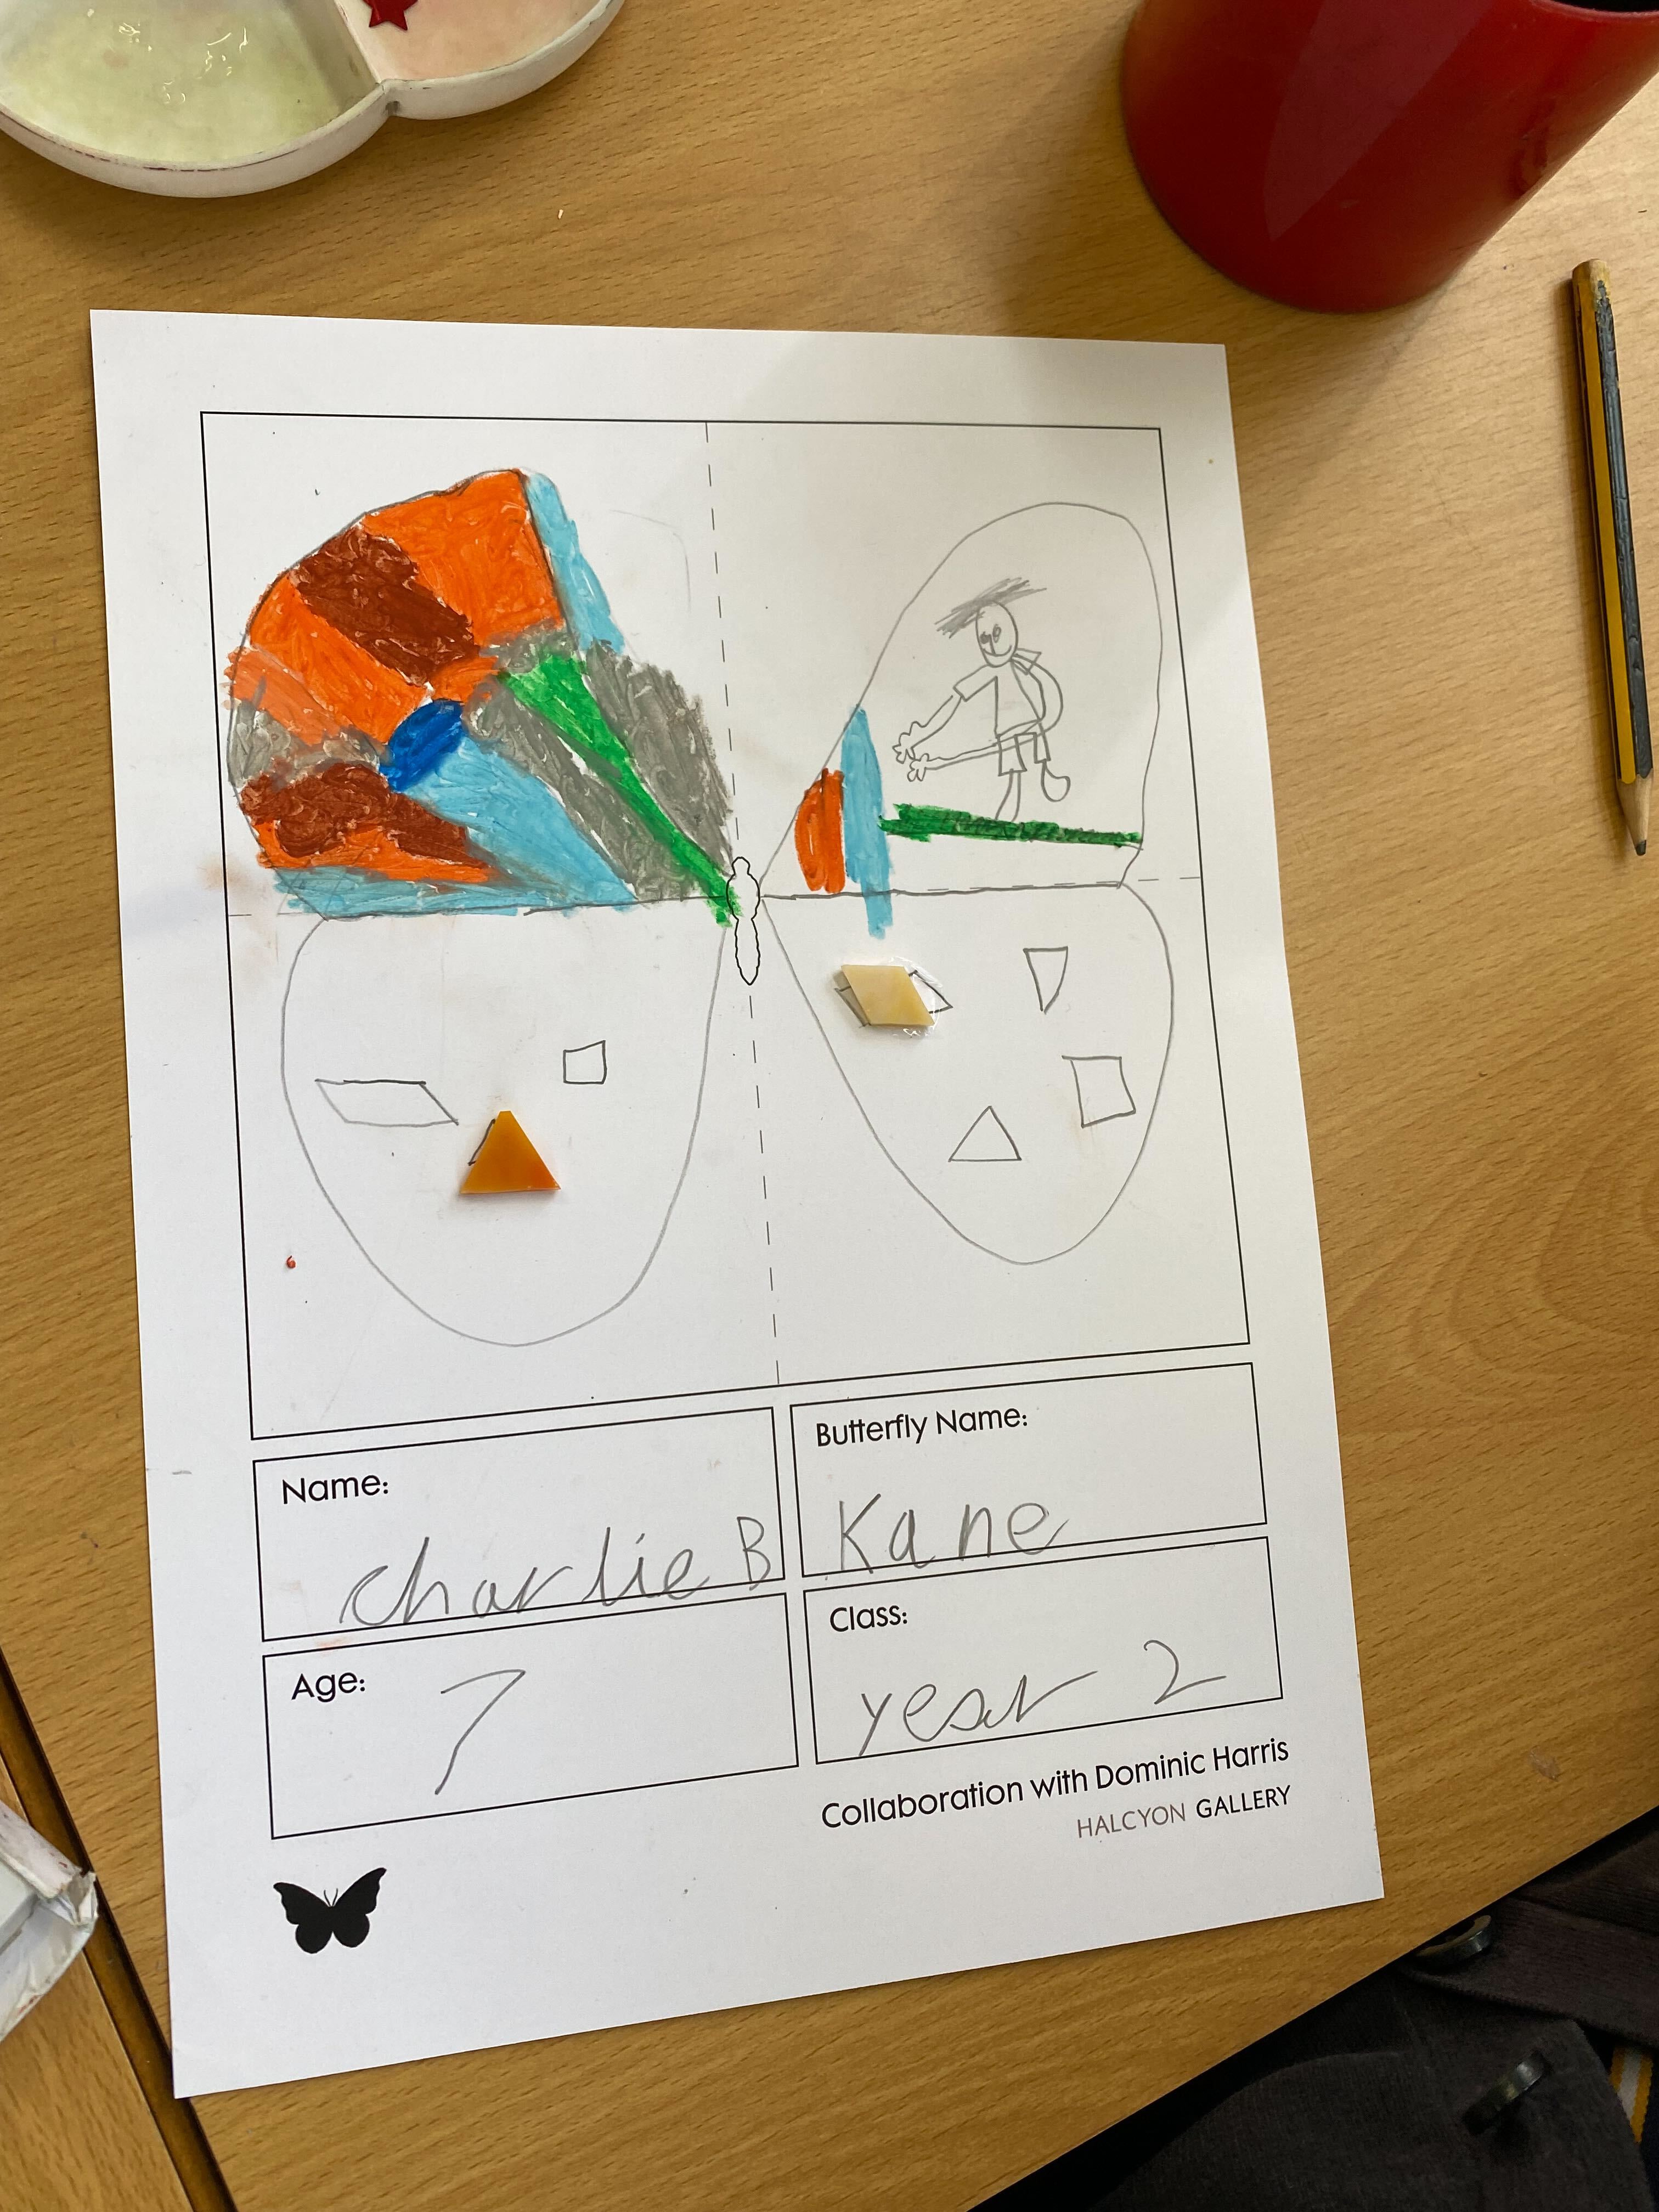 Name:
Charlie B
Butterfly Name:
Kane
Age:
7
Class:
year 2
Collaboration with Dominic Harris
HALCYON GALLERY